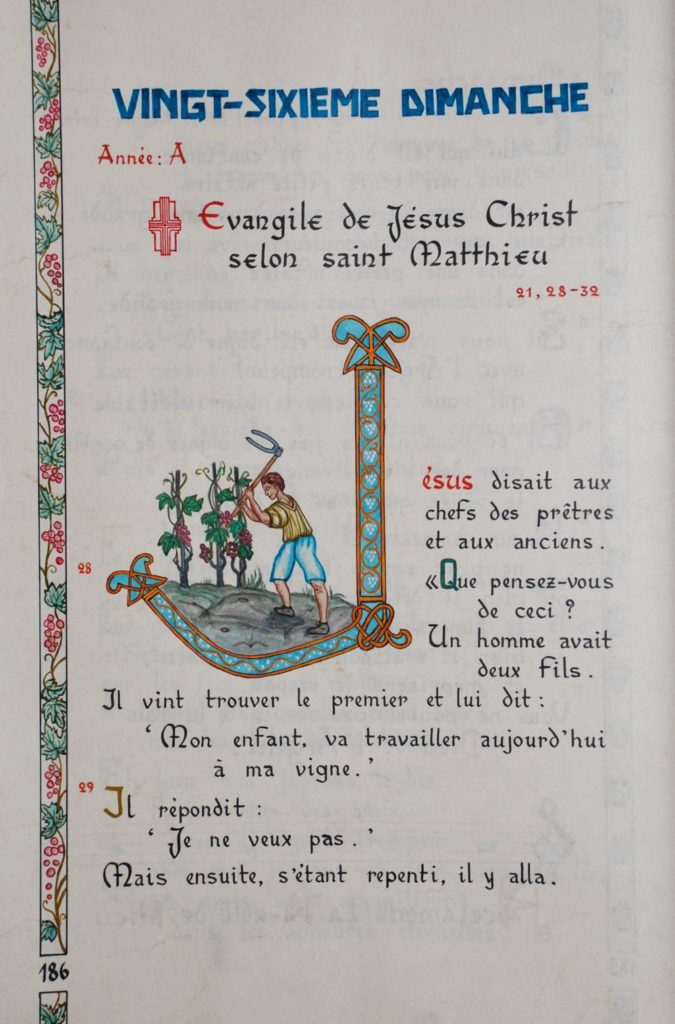 VINGT-SIXIEME DIMANCHE
Année: A
Evangile de Jésus Christ
selon saint Matthieu
21, 28-32
Jésus disait aux
chefs des prêtres
et aux anciens.
28
«Que pensez-vous
de ceci ?
Un homme avait
deux fils.
Il vint trouver le premier et lui dit :
‘Mon enfant, va travailler aujourd'hui
à ma vigne.’
29
Il répondit :
‘Je ne veux pas.’
Mais ensuite, s'étant repenti, il y alla.
186